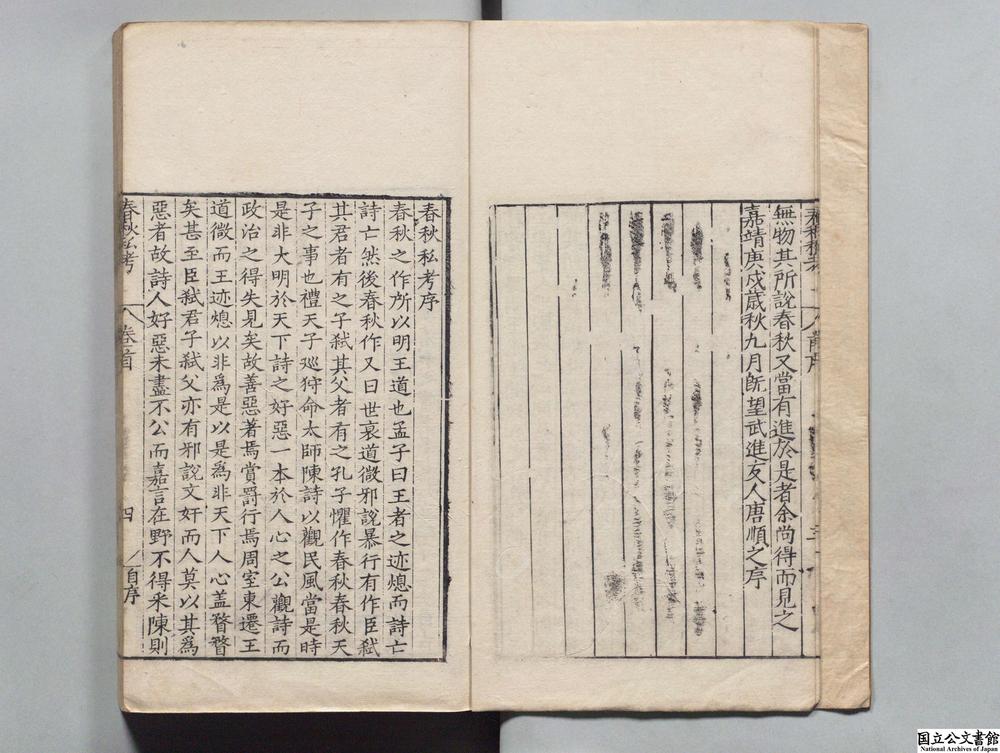 無物其所說春秋又當有進於是者余尚得而見之
嘉靖庚戌歲秋九月旣望武進友人唐順之序
春秋私考序
春秋之作所以明王道也孟子曰王者之迹熄而詩亡
詩亡然後春秋作又曰世衰道微邪說暴行有作臣弒
其君者有之子弒其父者有之孔子懼作春秋春秋天
子之事也禮天子巡狩命太師陳詩以觀民風當是時
是非大明於天下詩之好惡一本於人心之公觀詩而
政治之得失見矣故善惡著焉賞罰行焉周室東遷王
道微而王迹熄以非爲是以是爲非天下人心盖瞀瞀
矣甚至臣弒君子弒父亦有邪說文奸而人莫以其爲
惡者故詩人好惡未盡不公而嘉言在野不得釆陳則
春秋私考
卷首
四
自序
国立公文書館
National Archives of Japan